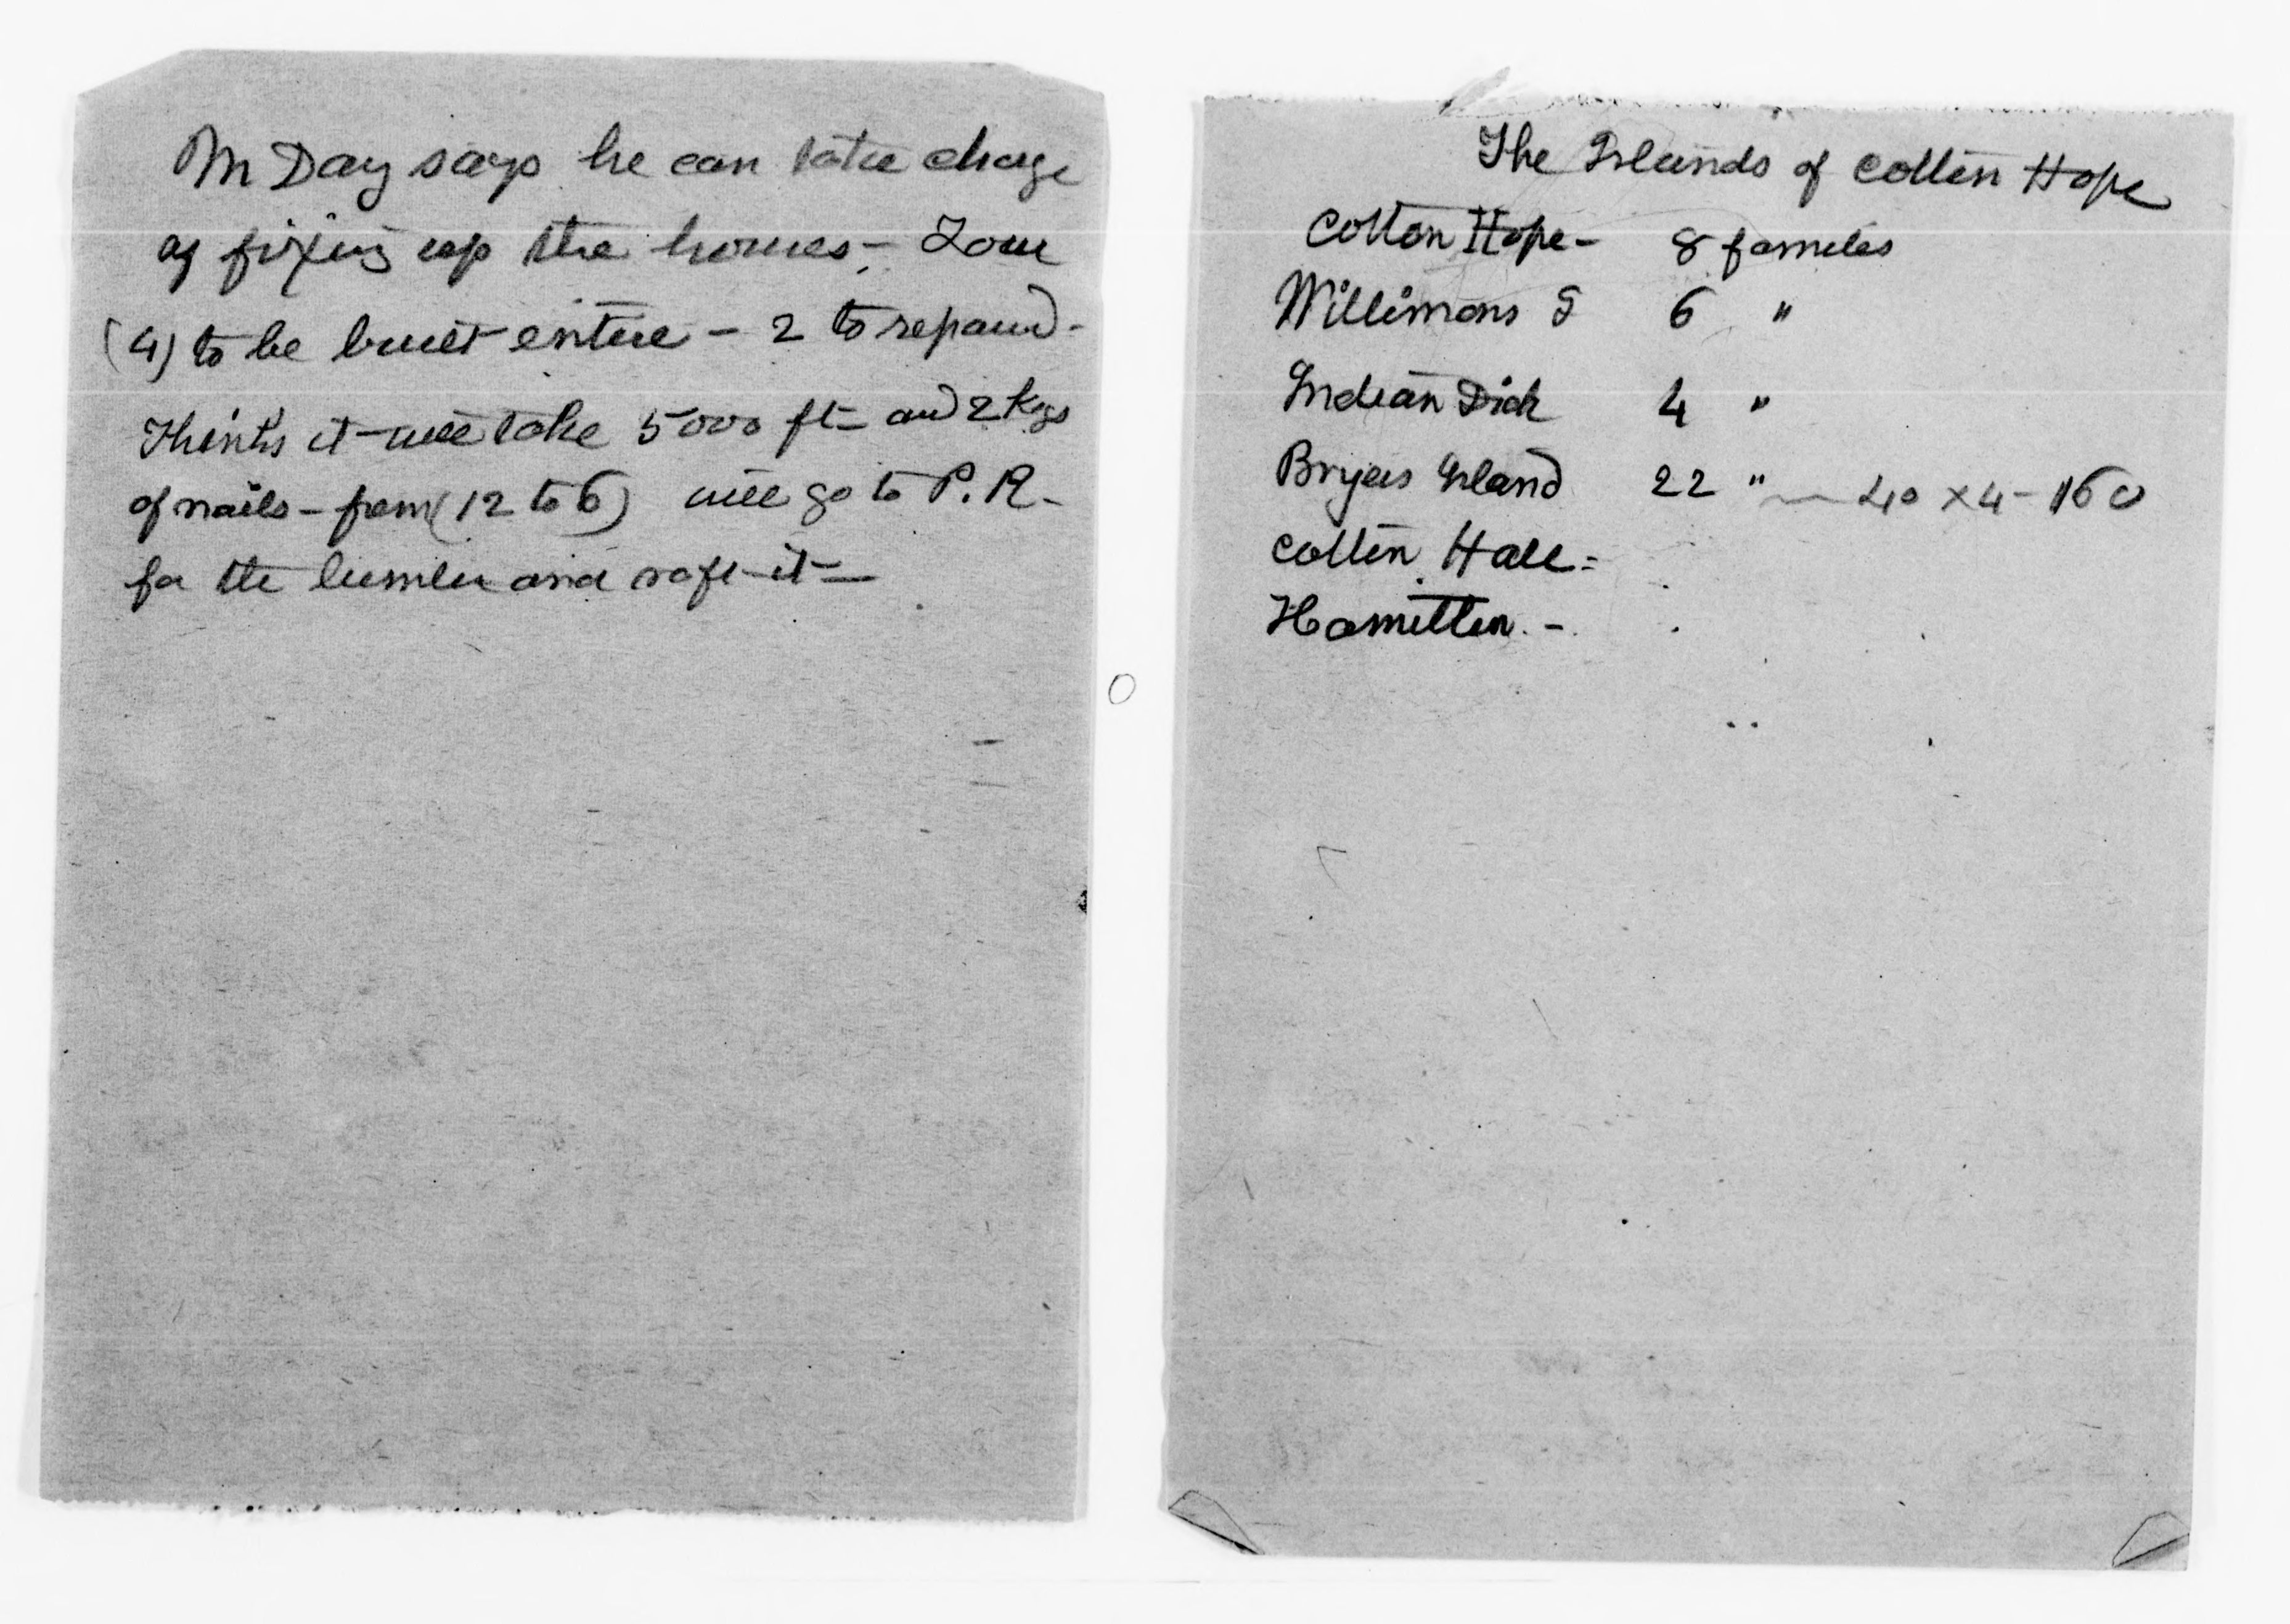 Mr Day says he can take charge
of fixing up the houses - Four
(4) to be built entire - 2 to repaired -
Thinks it will take 5000 ft - and 2 Kegs
of nails - from (12 to 6) will go to P. R. -
for the lumber and raft it -
The Islands of Cotton Hope
Cotton Hope - 8 families
Willimons I 6 "
Indian Dick 4 "
Bryers Island 22 " — 40 x 4 - 160
Cotton Hall =
Hamilton. -